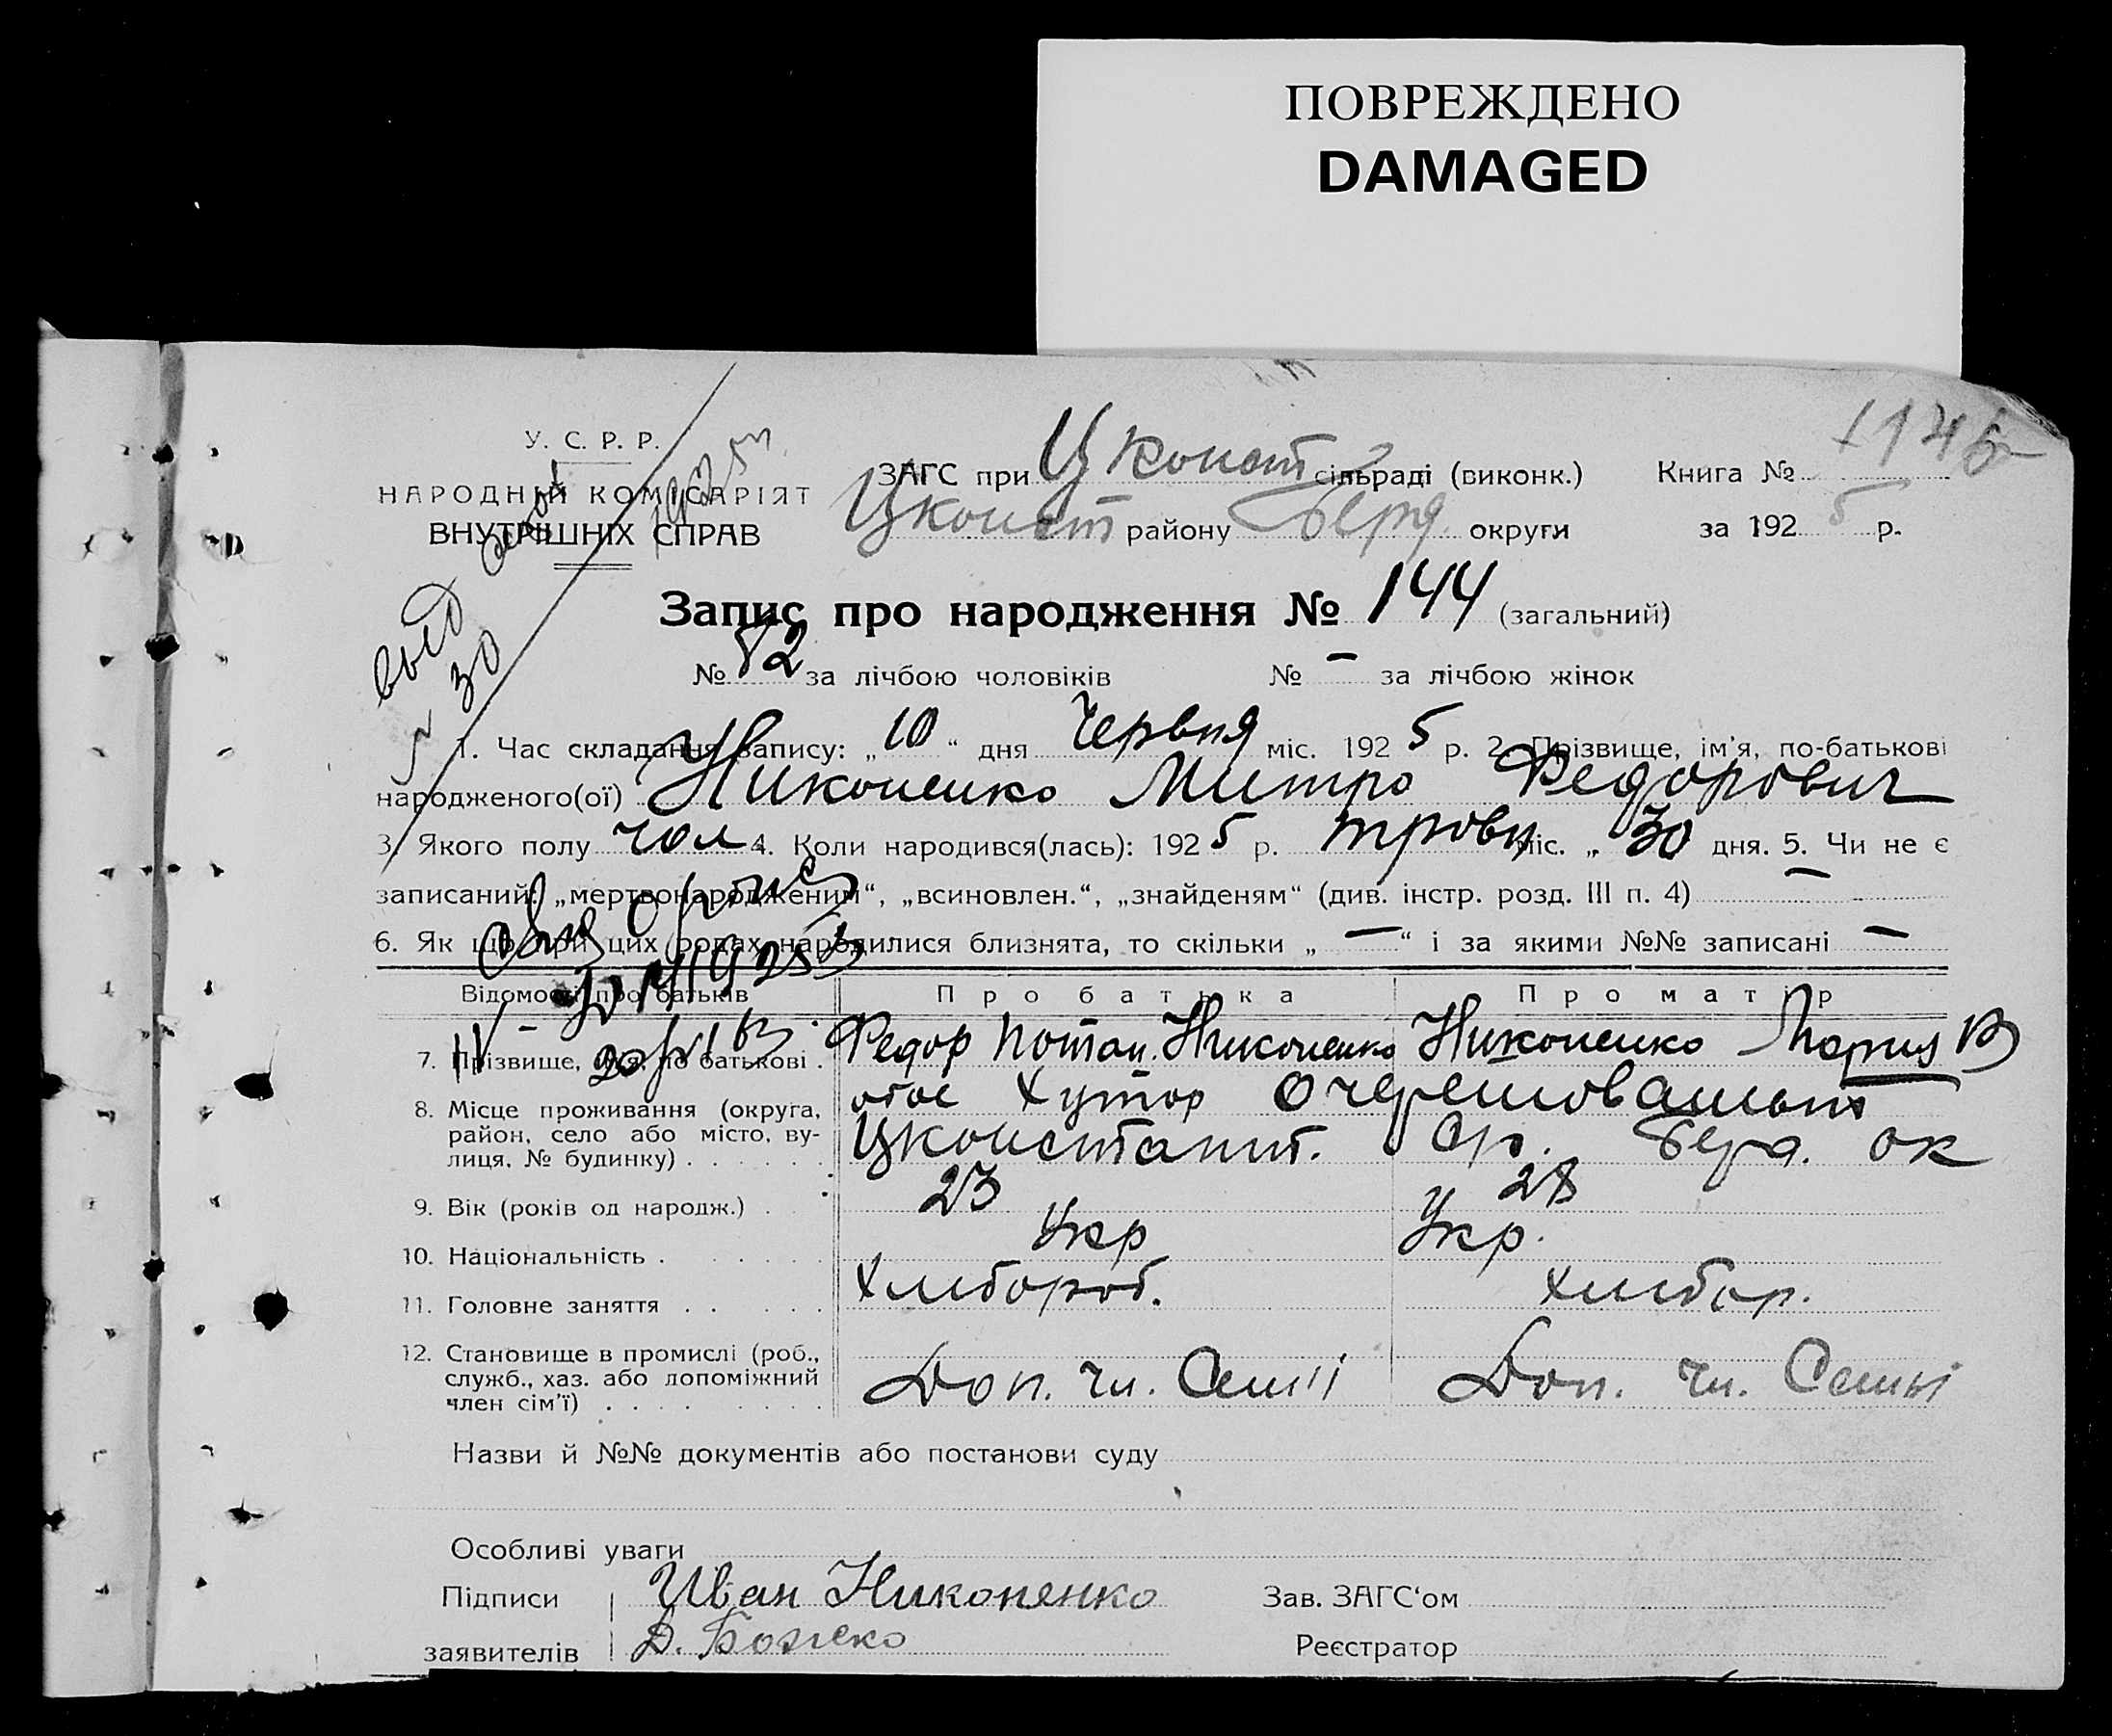 ПОВРЕЖДЕНО
DAMAGED
У. С. Р. Р.
НАРОДНИЙ КОМІСАРІЯТ
ВНУТРІШНІХ СПРАВ
ЗАГС при Цконст сільраді (виконк.) Книга №
Цконст району Берд округи за 192 5 р.
Запис про народження № 144 (загальний)
№ 82 за лічбою чоловіків № — за лічбою жінок
1. Час складання запису: „ 10 “ дня Червня міс. 192 5 р. 2. Прізвище, ім'я, по-батькові
народженого(ої) Никоненко Митро Федорович
3. Якого полу чол 4. Коли народився(лась): 192 5 р. травн міс. „ 30 дня. 5. Чи не є
записаний: „мертвонародженим“, „всиновлен.“, „знайденям“ (див. інстр. розд. III п. 4) —
6. Як що при цих родах народилися близнята, то скільки „ — “ і за якими №№ записані —
Відомості про батьків Про батька Про матір
7. Прізвище, ім'я, по батькові . Федор Потап. Никоненко Никоненко Мария В
8. Місце проживання (округа, район, село або місто, вулиця, № будинку) . . . . . . хутор
Цконстант. Берд. ок
9. Вік (років од народж.) . 23 28
10. Національність . . . . . . Укр Укр.
11. Головне заняття . . . . . Хлибороб. хлибор.
12. Становище в промислі (роб., служб., хаз. або допоміжний член сім'ї) . . . . . . . . Доп. чл. Семьі Доп. чл. Семьі
Назви й №№ документів або постанови суду
Особливі уваги
Підписи Иван Никоненко Зав. ЗАГС'ом
заявителів Д. Божко Реєстратор